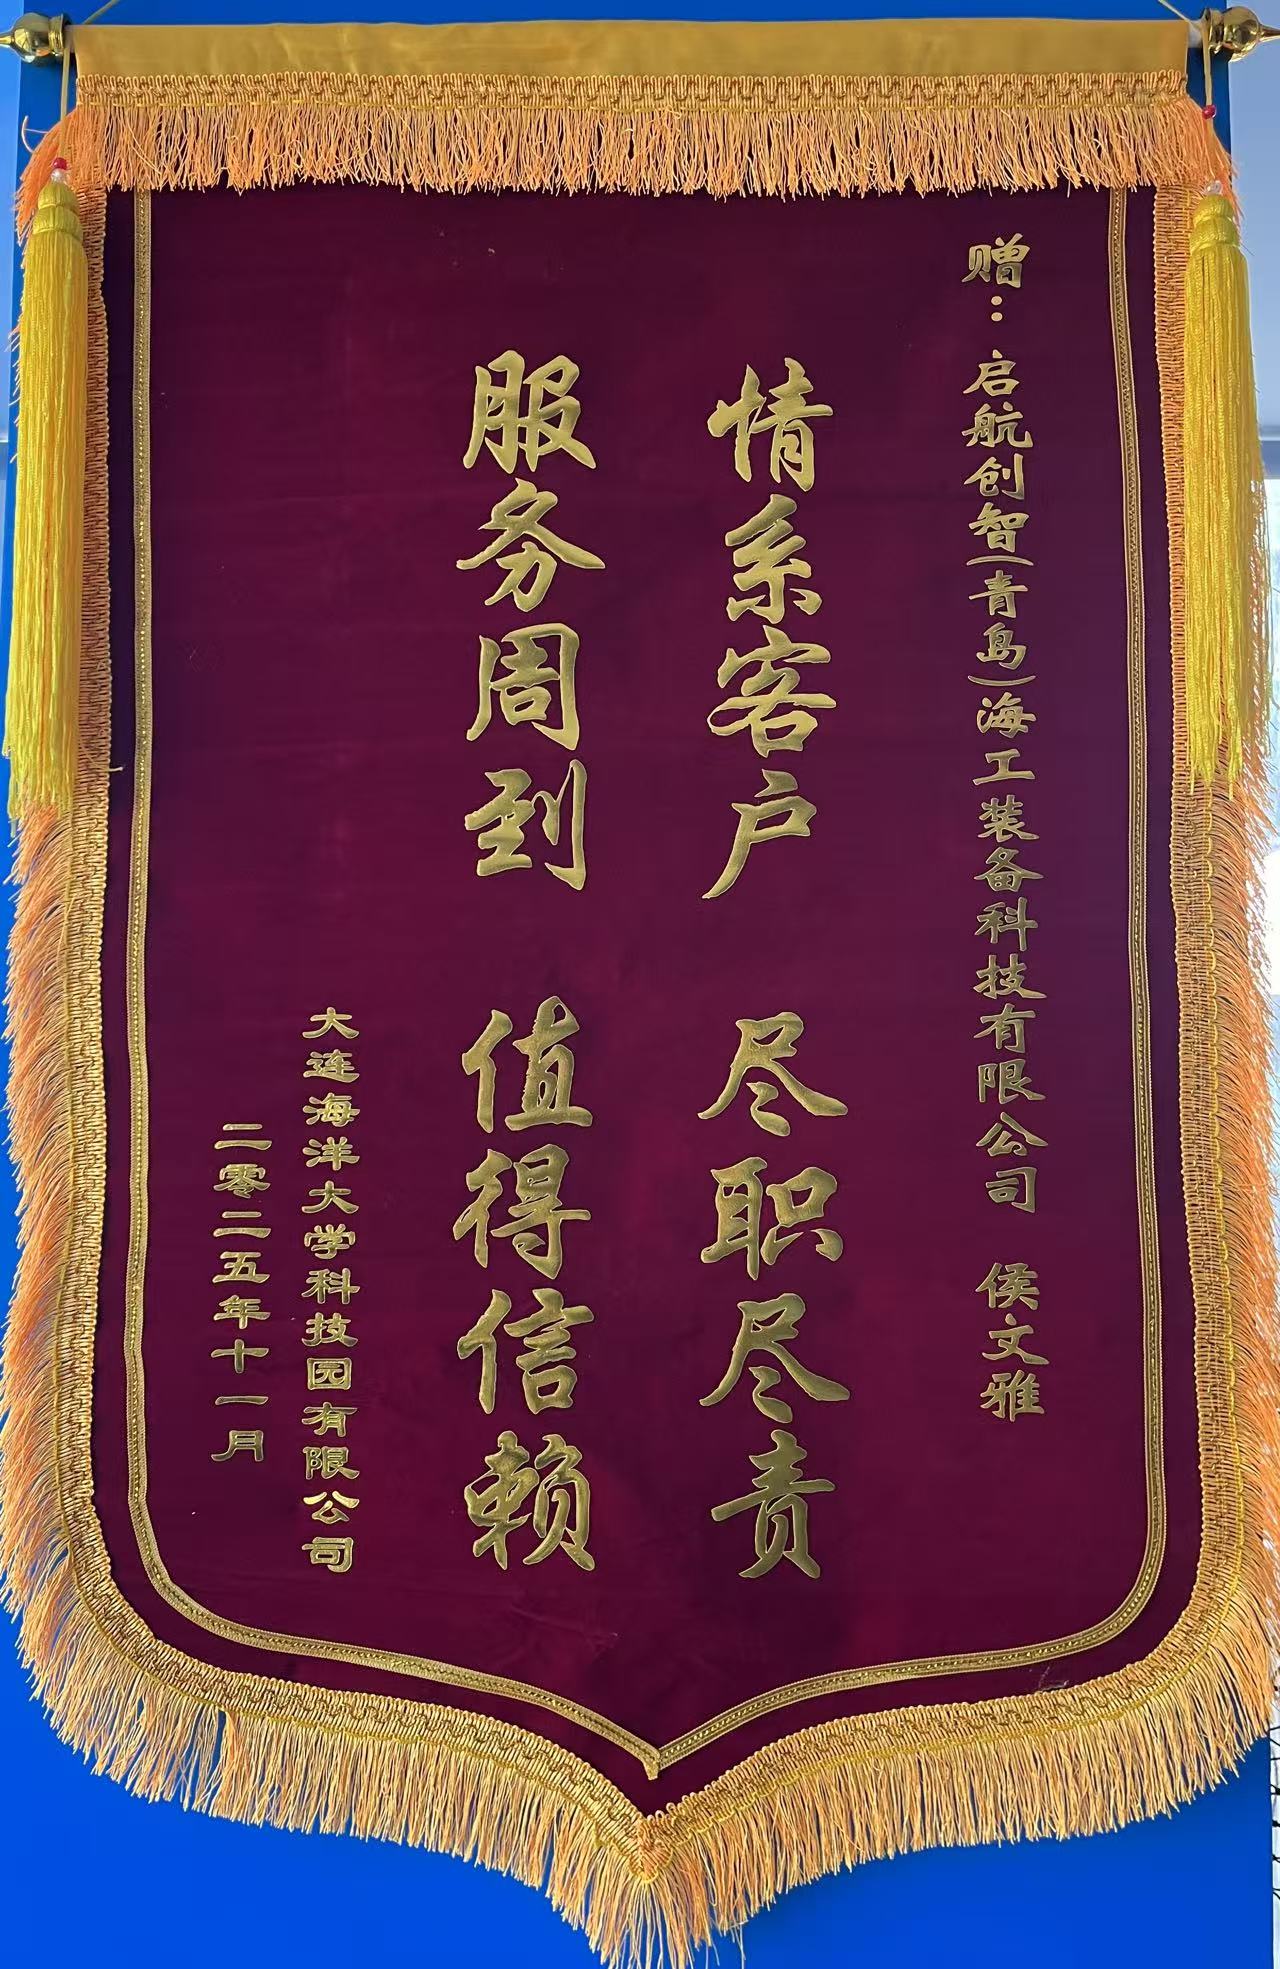 赠：启航创智(青岛)海工装备科技有限公司 侯文雅
情系客户 尽职尽责
服务周到 值得信赖
大连海洋大学科技园有限公司
二零二五年十一月